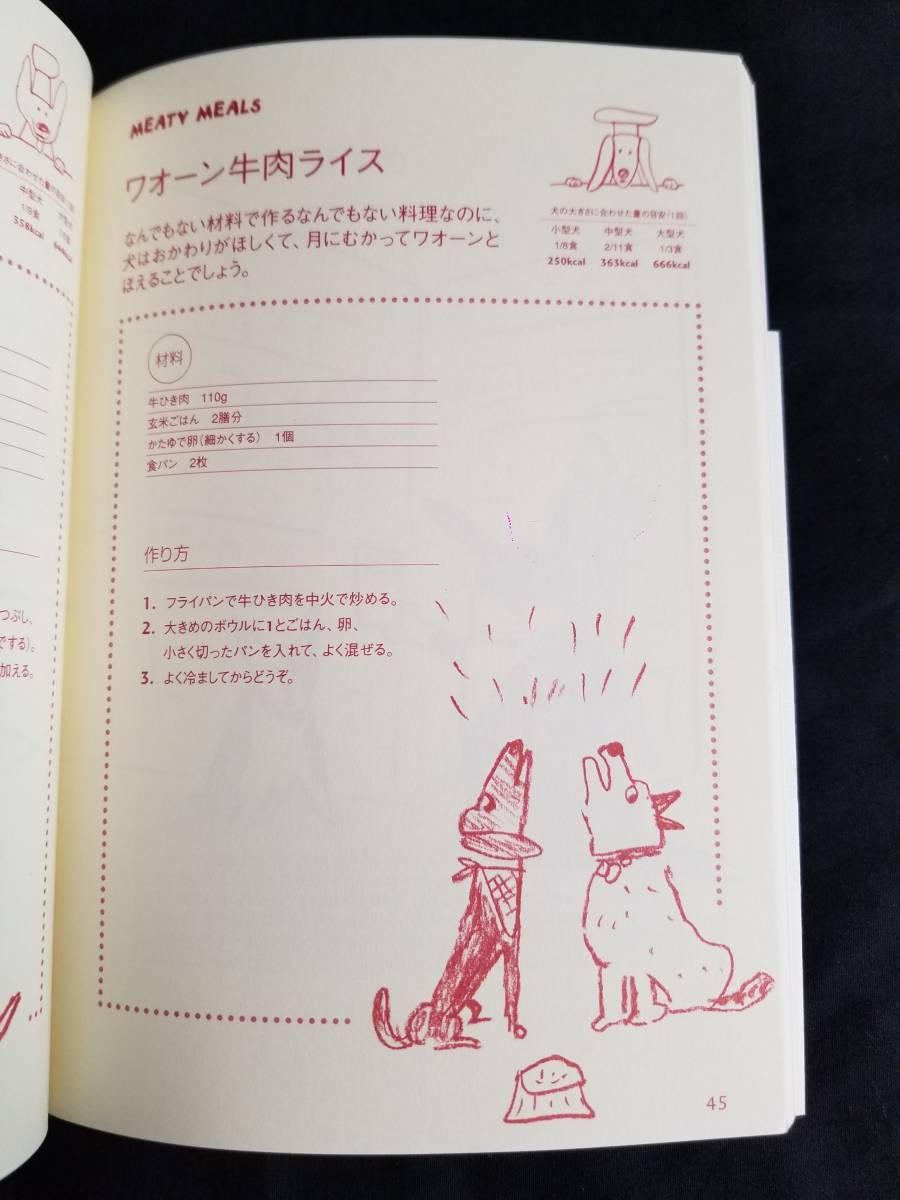 きさに合わせた量の目安(1回)
中型犬 大型犬
1/9食
358kcal 666kcal
つぶし、
でする)。
加える。
MEATY MEALS
ワオーン牛肉ライス
なんでもない材料で作るなんでもない料理なのに、
犬はおかわりがほしくて、月にむかってワオーンと
ほえることでしょう。
犬の大きさに合わせた量の目安(1回)
小型犬 中型犬 大型犬
1/8食 2/11食 1/3食
250kcal 363kcal 666kcal
材料
牛ひき肉 110g
玄米ごはん 2膳分
かたゆで卵(細かくする) 1個
食パン 2枚
作り方
1. フライパンで牛ひき肉を中火で炒める。
2. 大きめのボウルに1とごはん、卵、
小さく切ったパンを入れて、よく混ぜる。
3. よく冷ましてからどうぞ。
45